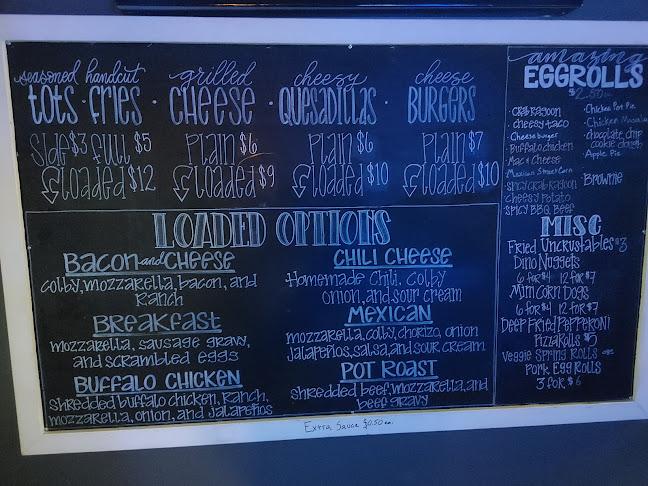 seasoned handcut
tots · fries
Side $3 full $5
loaded $12
grilled
CHEESE
Plain $6
loaded $9
cheesy
QUESADILLAS
Plain $6
loaded $10
cheese
BURGERS
Plain $7
loaded $10
LOADED OPTIONS
Bacon and Cheese
colby, mozzarella, bacon, and
Ranch
Breakfast
mozzarella, sausage gravy,
and scrambled eggs
Buffalo Chicken
shredded buffalo chicken, ranch,
mozzarella, onion, and jalapeños
CHILI CHEESE
Homemade chili, colby
onion, and sour cream
MEXICAN
mozzarella, colby, chorizo, onion
jalapeños, salsa, and sour cream
POT ROAST
shredded beef, mozzarella, and
beef gravy
amazing
EGGROLLS
$2.50 ea
· crab ragoon
· cheesy taco
· Cheeseburger
· Buffalo chicken
· Mac & Cheese
· Mexican Street Corn
· spicy crab ragoon
· cheesy potato
· spicy BBQ Beef
· Chicken Pot Pie
· Chicken Masala
· chocolate chip
cookie dough
· Apple Pie
· Brownie
MISC
Fried Uncrustables $3
Dino Nuggets
6 for $4 12 for $7
Mini Corn Dogs
6 for $4 12 for $7
Deep Fried Pepperoni
Pizza Rolls $5
Veggie Spring Rolls or
Pork Egg Rolls
3 for $6
Extra Sauce $0.50 ea.